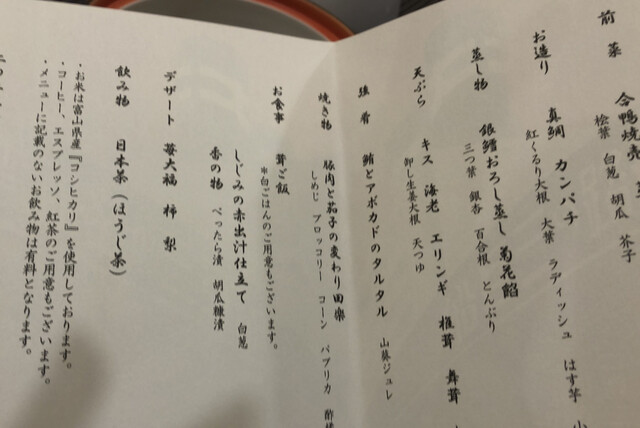 前菜 合鴨焼売
桧葉 白葱 胡瓜 芥子
お造り 真鯛 カンパチ
紅くるり大根 大葉 ラディッシュ はす芋
蒸し物 銀鱈おろし蒸し 菊花餡
三つ葉 銀杏 百合根 とんぶり
天ぷら キス 海老 エリンギ 椎茸 舞茸
卸し生姜大根 天つゆ
強肴 鮪とアボカドのタルタル 山葵ジュレ
焼き物 豚肉と茄子の変わり田楽
しめじ ブロッコリー コーン パプリカ
お食事 茸ご飯
※白ごはんのご用意もございます。
しじみの赤出汁仕立て 白葱
香の物 べったら漬 胡瓜糠漬
デザート 苺大福 柿 梨
飲み物 日本茶(ほうじ茶)
・お米は富山県産『コシヒカリ』を使用しております。
・コーヒー、エスプレッソ、紅茶のご用意もございます。
・メニューに記載のないお飲み物は有料となります。